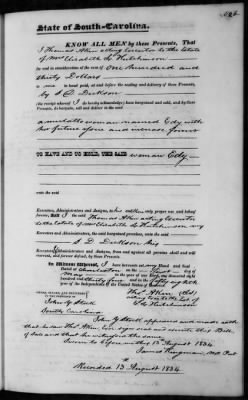 State of South-Carolina.
KNOW ALL MEN by these Presents, That
I Thomas Aken acting Executor to the Estate
of Mrs Elizabeth S. Hutchinson
for and in consideration of the sum of One hundred and
thirty Dollars
to me in hand paid, at and before the sealing and delivery of these Presents,
by S D Dickson
(the receipt whereof I do hereby acknowledge) have bargained and sold, and by these
Presents, do bargain, sell and deliver to the said
a mulatto woman named Edy with
her future issue and increase
TO HAVE AND TO HOLD, THE SAID woman Edy
unto the said
Executors, Administrators and Assigns,
forever. AND I the said Thomas Aken acting Executor
to the Estate of Mrs Elizabeth S. Hutchinson my
Executors and Administrators, the said bargained premises, unto the said
S D Dickson his
Executors, Administrators and Assigns, from and against all persons shall and will
warrant, and forever defend, by these Presents.
In Witness Whereof, I have hereunto set my Hand and Seal
Dated at Charleston on the
May in the year of our Lord, one thousand eight
hundred and thirty four and in the fifty eighth
year of the Independence of the United States of America.
Thos. Aken
John G Stock
E S Hutchinson
South Carolina
John G Stock appeared and made oath
that he saw Thos. Aken sign seal and execute this Bill
of Sale and that he witnessed the same.
Sworn to before me this 13 August 1834
James Kingman
Recorded 13 August 1834